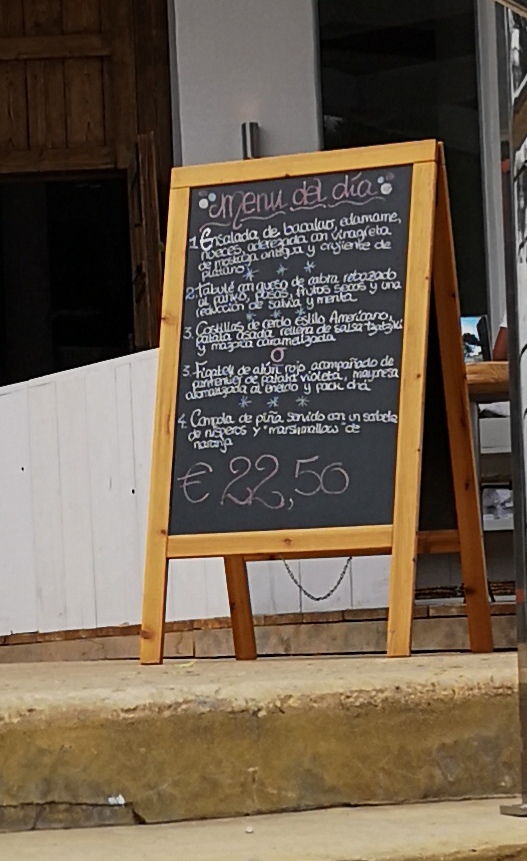 menu del día
1. Ensalada de bacalao, edamame,
nueces, aderezada con vinagreta
de mostaza antigua y crujiente de
platano
2. Tabulé con queso de cabra rebozado
al panko, pasas, frutos secos y una
reducción de salvia y menta
3. Costillas de cerdo estilo Americano,
patata asada rellena de salsa tzatziki
y mazorca caramelizada
o
3. de atún rojo acompañado de
parmentier de patata violeta, mayonesa
aromatizada al eneldo y pack choi
4. Compota de piña servido con un sorbete
de nísperos y "marshmallow" de
naranja
€ 22,50